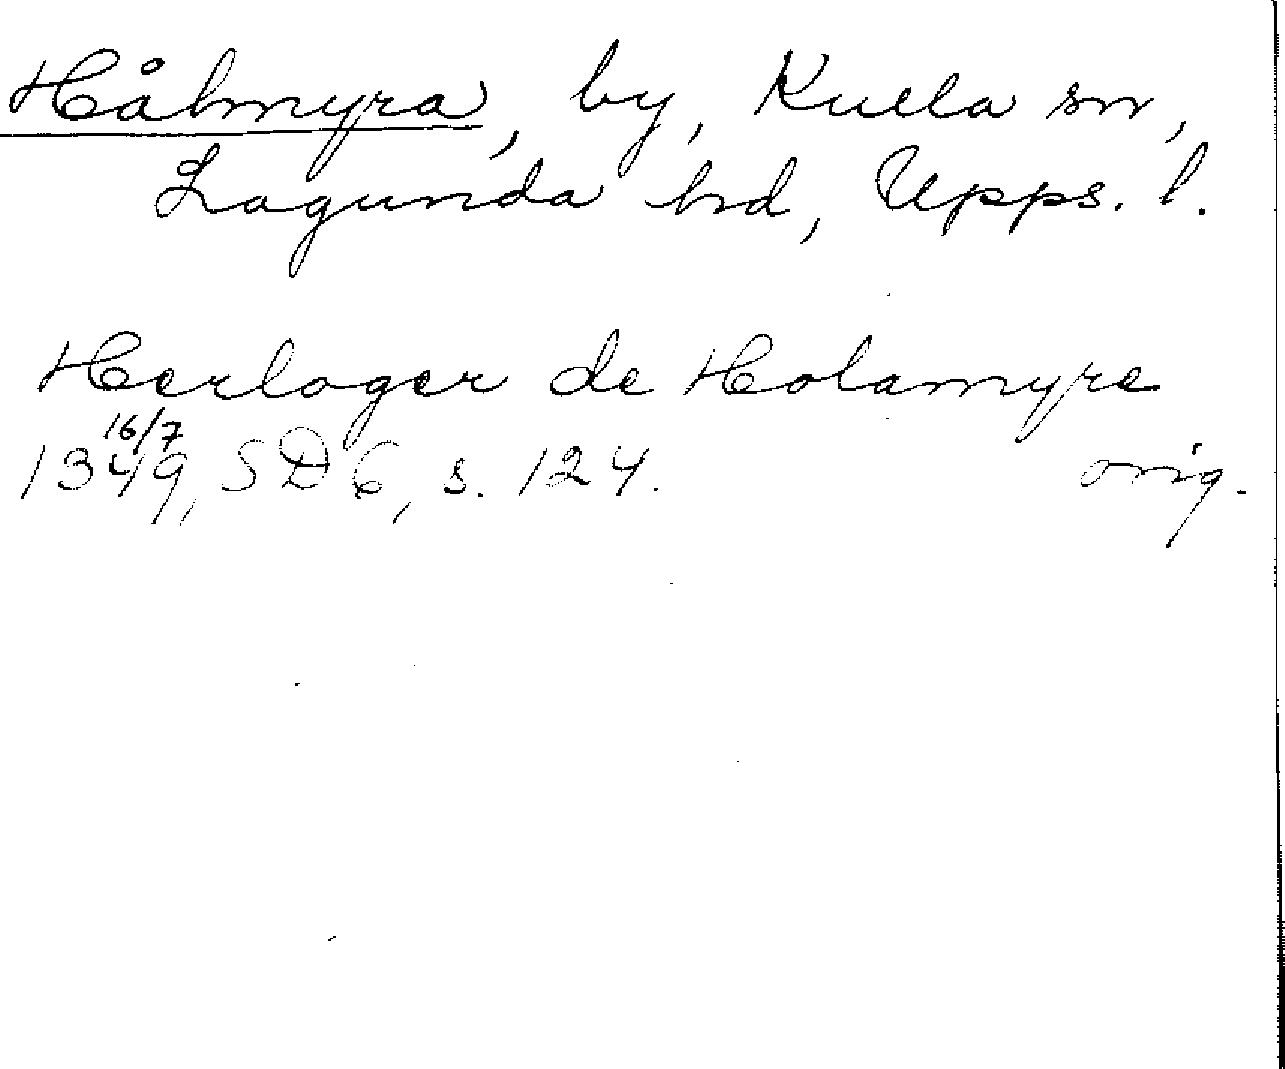 Hålmyra, by, Kulla sn,
Lagunda hd, Upps. l.
Herloger de Holamyre
16/7
1349, SD 6, s. 124. orig.